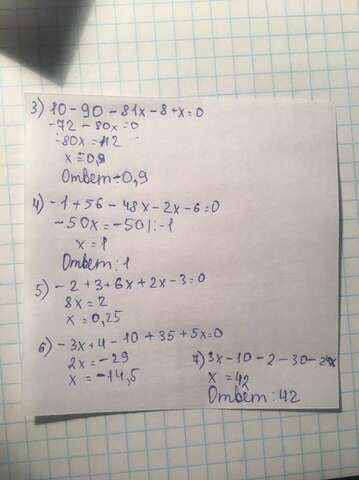 3) 10 - 90 - 81x - 8 + x = 0
-72 - 80x = 0
-80x = 
x = 0,9
Ответ -0,9
4) -1 + 56 - 48x - 2x - 6 = 0
-50x = -50 |: -1
x = 1
Ответ: 1
5) -2 + 3 + 6x + 2x - 3 = 0
8x = 2
x = 0,25
6) -3x + 4 - 10 + 35 + 5x = 0
2x = -29
x = -14,5
7) 3x - 10 - 2 - 30 - 2x
x = 42
Ответ: 42